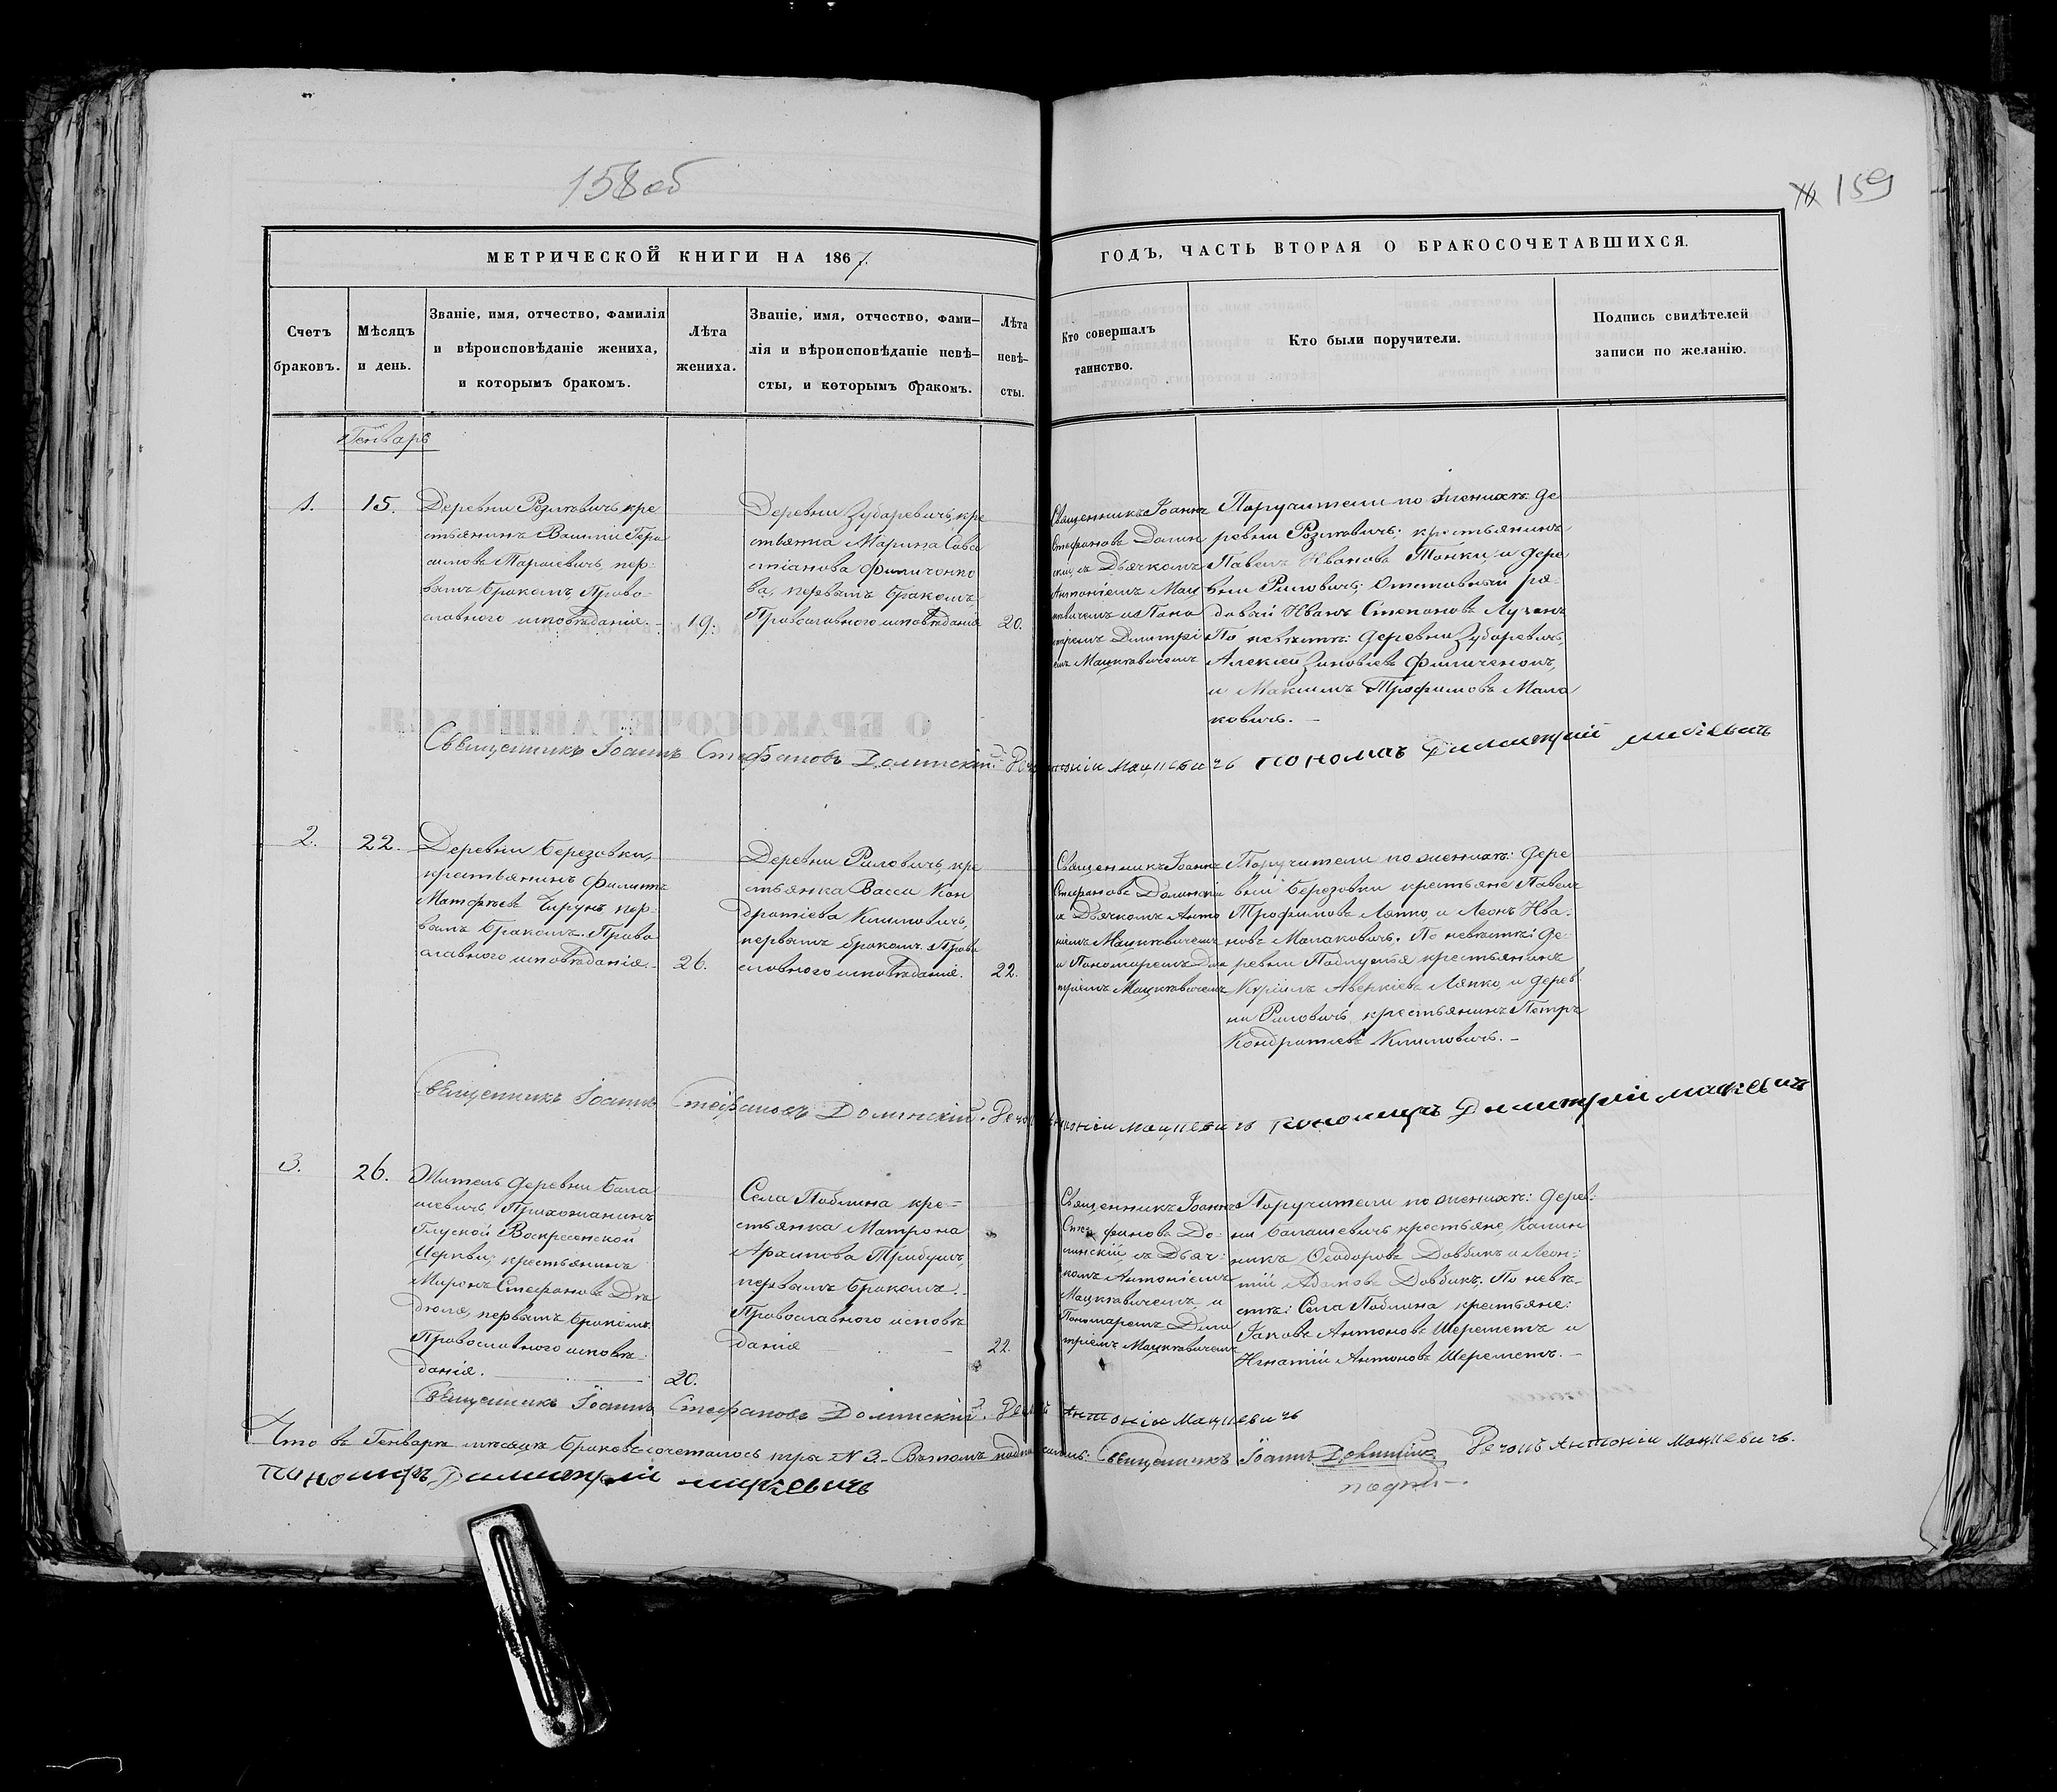 158 об
159
МЕТРИЧЕСКОЙ КНИГИ НА 1867.
ГОДЪ, ЧАСТЬ ВТОРАЯ О БРАКОСОЧЕТАВШИХСЯ.
Счетъ
браковъ.
Мѣсяцъ
и день.
Званіе, имя, отчество, фамилія
и вѣроисповѣданіе жениха,
и которымъ бракомъ.
Лѣта
жениха.
Званіе, имя, отчество, фами–
лія и вѣроисповѣданіе невѣ–
сты, и которымъ бракомъ.
Лѣта
невѣ–
сты.
Кто совершалъ
таинство.
Кто были поручители.
Подпись свидѣтелей
записи по желанію.
Генварь
1.
15.
Деревни Розиковичь кре
стьянинъ Василій Гера
симовъ Тарасевичь, пер:
вымъ бракомъ Право
славного исповѣданія.
19.
Деревни Зубаревичь, кре
стьянка Марина Савас
тіанова Филичонко
ва, первымъ бракомъ,
Православного исповѣданія
20.
Священникъ Іоаннъ
Стефановъ Долин
скій, съ Дьячкомъ
Антоніемъ Мац
кевичемъ и Поно
маремъ Димитрі
емъ Мацкевичемъ
Поручители по женихѣ: де
ревни Розиковичь; крестьянинъ
Павелъ Ивановъ Тонки, и дере
вни Риловичь; Отставный ря
давай Иванъ Степановъ Лученъ
По невѣстѣ: деревни Зубаревичь,
Алексій Зиновіевъ Филиченокъ,
и Максимъ Трофимовъ Мала
ковичь. –
Священникъ Іоаннъ Стефановъ Долинскій. Дечокъ Антоній Мацкевичъ пономаръ Димитрій
2.
22.
Деревни Березовки,
крестьянинъ Филиппъ
Матфѣевъ Чирунъ, пер:
вымъ бракомъ. Право
славного исповѣданія.
26.
Деревни Риловичь, кре
стьянка Васса Кон
дратіева Климовичь,
первымъ бракомъ. Право
славного исповѣданія.
22.
Священникъ Іоаннъ
Стефановъ Долински
съ Дьячкомъ Анто
ніемъ Мацкевичемъ
и Пономаремъ Дим
тріемъ Мацкевичемъ
Поручители по женихѣ: дере
вни Березовки крестьяне Павелъ
Трофимовъ Ляпко, и Леонъ Ива:
новъ Малаковичь. По невѣстѣ: де
ревни Подлужья крестьянинъ
Киріилъ Аверкіевъ Ляпко, и дерев:
ни Риловичь крестьянинъ Петръ
Кондратіевъ Климовичь. –
Священникъ Іоаннъ Стефановъ Долинскій. Дечокъ Антоній Мацкевичъ пономаръ Димитрій мацкевичъ
3.
26.
Житель деревни Бала
шевичь, Прихожанинъ
Глуской Воскресенской
Церкви; крестьянинъ
Миронъ Стефановъ Дѣ
дюля, первымъ бракомъ.
Православного исповѣ:
данія.
20.
Села Поблина кре=
стьянка Матрона
Архипова Трибушъ,
первымъ бракомъ.
Православного исповѣ
данія
22.
Священникъ Іоаннъ
Стефановъ До:
линскій, съ Дьяч:
комъ Антоніемъ
Мацкевичемъ и
Пономаремъ Дими
тріемъ Мацкевичемъ
Поручители по женихѣ: дерев:
ни Балашевичь крестьяне, Калин
никъ Ѳеодоровъ Довбикъ и Леон:
тій Адамовъ Довбикъ. По невѣ
стѣ: Села Поблина крестьяне:
Іаковъ Антоновъ Шереметъ и
Игнатій Антоновъ Шереметъ. –
Священникъ Іоаннъ Стефановъ Долинскій. Дечокъ Антоній Мацкевичъ
Что въ Генварѣ мѣсяцѣ браковъ сочеталось три № 3. – Въ томъ подписались: Священникъ Іоаннъ Долинскій Дечокъ Антоній Мацкевичъ.
пономаръ Димитрій мацкевичъ